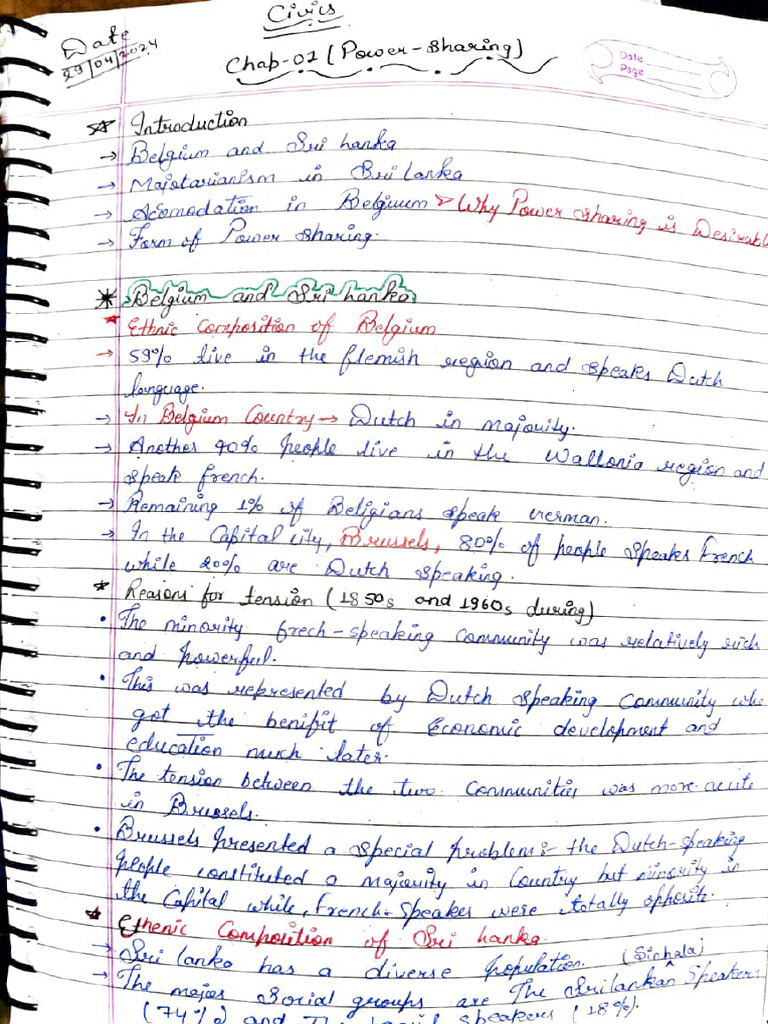 Civics
Date
29/04/2024
Chap-01 (Power-sharing)
Date
Page
Introduction
→ Belgium and Sri lanka
→ Majotarianism in Sri Lanka
→ Acomodation in Belgiuum > Why Power sharing is Desirabl
→ Form of Power sharing.
* Belgium and Sri lanka
* Ethnic Composition of Belgium
→ 59% live in the flemish region and speaks Dutch
language.
→ In Belgium Country → Dutch in majority.
→ Another 40% people live in the Wallonia region and
speak french.
→ Remaining 1% of Beligians speak german.
→ In the Capital city, Brussels, 80% of people speaks french
while 20% are Dutch speaking.
* Reasons for tension (1850s and 1960s during)
• The minority frech-speaking community was relatively rich
and powerful.
• This was represented by Dutch speaking community who
got the benifit of Economic development and
education much later.
• The tension between the two communities was more acute
in Brussels.
• Brussels presented a special problem:- the Dutch-speaking
people constituted a majority in Country but minority in
the Capital while, french-speaker were totally opposite.
* Ethenic Composition of Sri lanka.
→ Sri lanka has a diverse population. (Sinhala)
→ The major social groups are The Srilankan speakers
(74%) and The tamil speakers (18%).